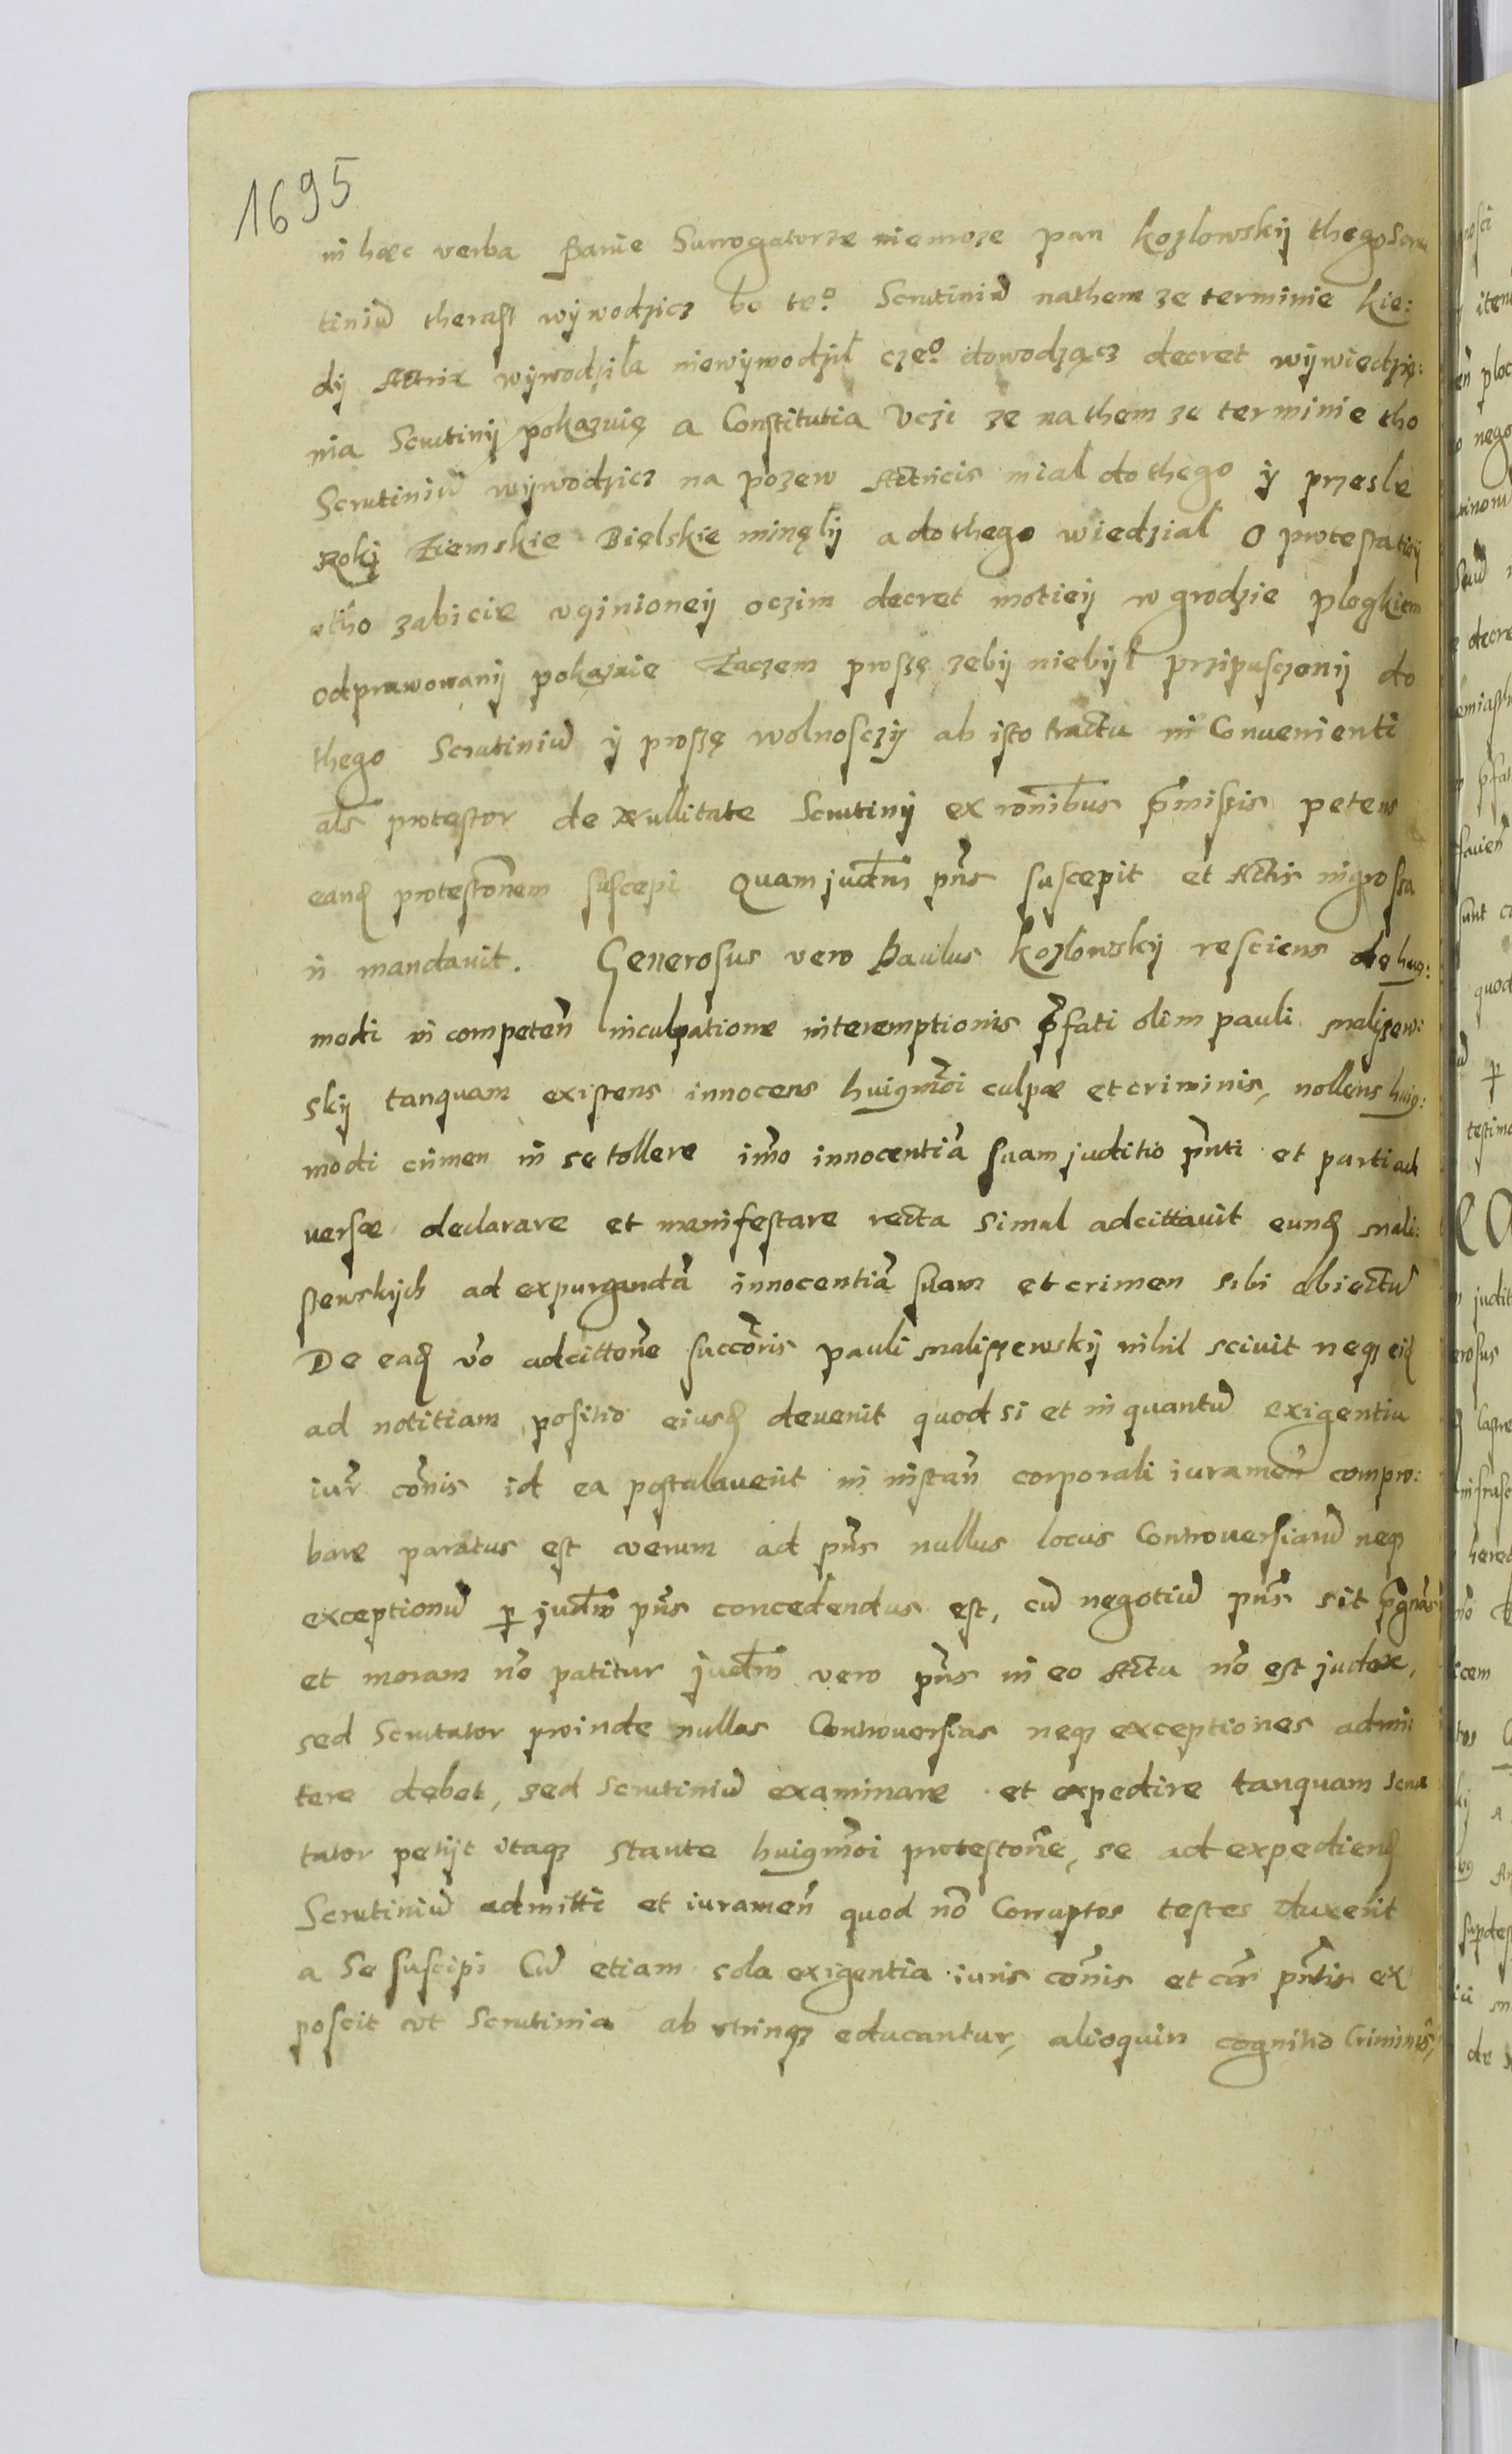 1695
in hæc verba Panie Surrogatorze niemoze pan kozlowskij thego Scru
tiniu̇ therasz wywodzicz bo te⁰ Scrutiniu̇ nathem ze terminie kie:
dij Actrix wywodzila niewywodzil cze⁰ dowodzącz decret wywiedzię:
nia Scrutinij pokazuię a Constitutia Vczi ze na them ze terminie tho
Scrutiniu̇ wywodzicz na pozew Actricis mial do thego ij przesle
Rokj Ziemskie Bielskie minęlij a do thego wiedzial O protestatiej
otho zabicie vcinioneij oczim decret motieij w grodzie plogkiem
odprawowanij pokazuie Zaczem proszę zebij niebijl przipusczonij do
thego Scrutiniu̇ ij proszę wolnosczij ab isto tractu in Convenienti
al̃s protestor de Nullitate Scrutinij ex ronĩbus p̃missis petens
eandȩ protestoñem suscepi Quam jud̃m pñs suscepit et Actis ingrossa
ri mandauit. Generosus vero Paulus kozlowskij resciens de huig:
modi in competeñ inculpatione interemptionis p̃fati olim pauli malisew:
skij tanquam existens innocens huigm̃oi culpæ et criminis, nollens huig:
modi crimen in se tollere im̃o innocentiã suam juditio pñti et parti ad
uersæ declarare et manifestare recta simul adcittauit eundȩ mali:
szewskijch ad expurgandã innocentiã suam et crimen sibi obiectu̇
De eadȩ ṽo adcittoñe succõris pauli maliszewskij nihil sciuit neqȝ eidȩ
ad notitiam positio eiusdȩ deuenit quod si et in quantu̇ exigentia
iur̃ coñis id ea postulauerit in instañ corporali iurameñ compro:
bare paratus est verum ad pñs nullus locus Controuersiaru̇ neqȝ
exceptionu̇ ꝑ jud̃m pñs concedendus est, cu̇ negotiu̇ pñs sit p̃gnãs
et moram nõ patitur jud̃m vero pñs in eo Actu nõ est judex,
sed Scrutator proinde nullas Controuersias neqȝ exceptiones admi:
tere debet, sed scrutiniu̇ examinare et expedire tanquam scru
tator petijt itaqȝ stante huigm̃oi protestoñe, se ad expediendȩ
Scrutiniu̇ admitti et iurameñ quod nõ Corruptos testes duxerit
a se suscipi Cu̇ etiam sola exigentia iuris coñis et cãr pñtis ex
poscit vt scrutinia ab vtrinqȝ educantur, alioquin cognitio Criminis,